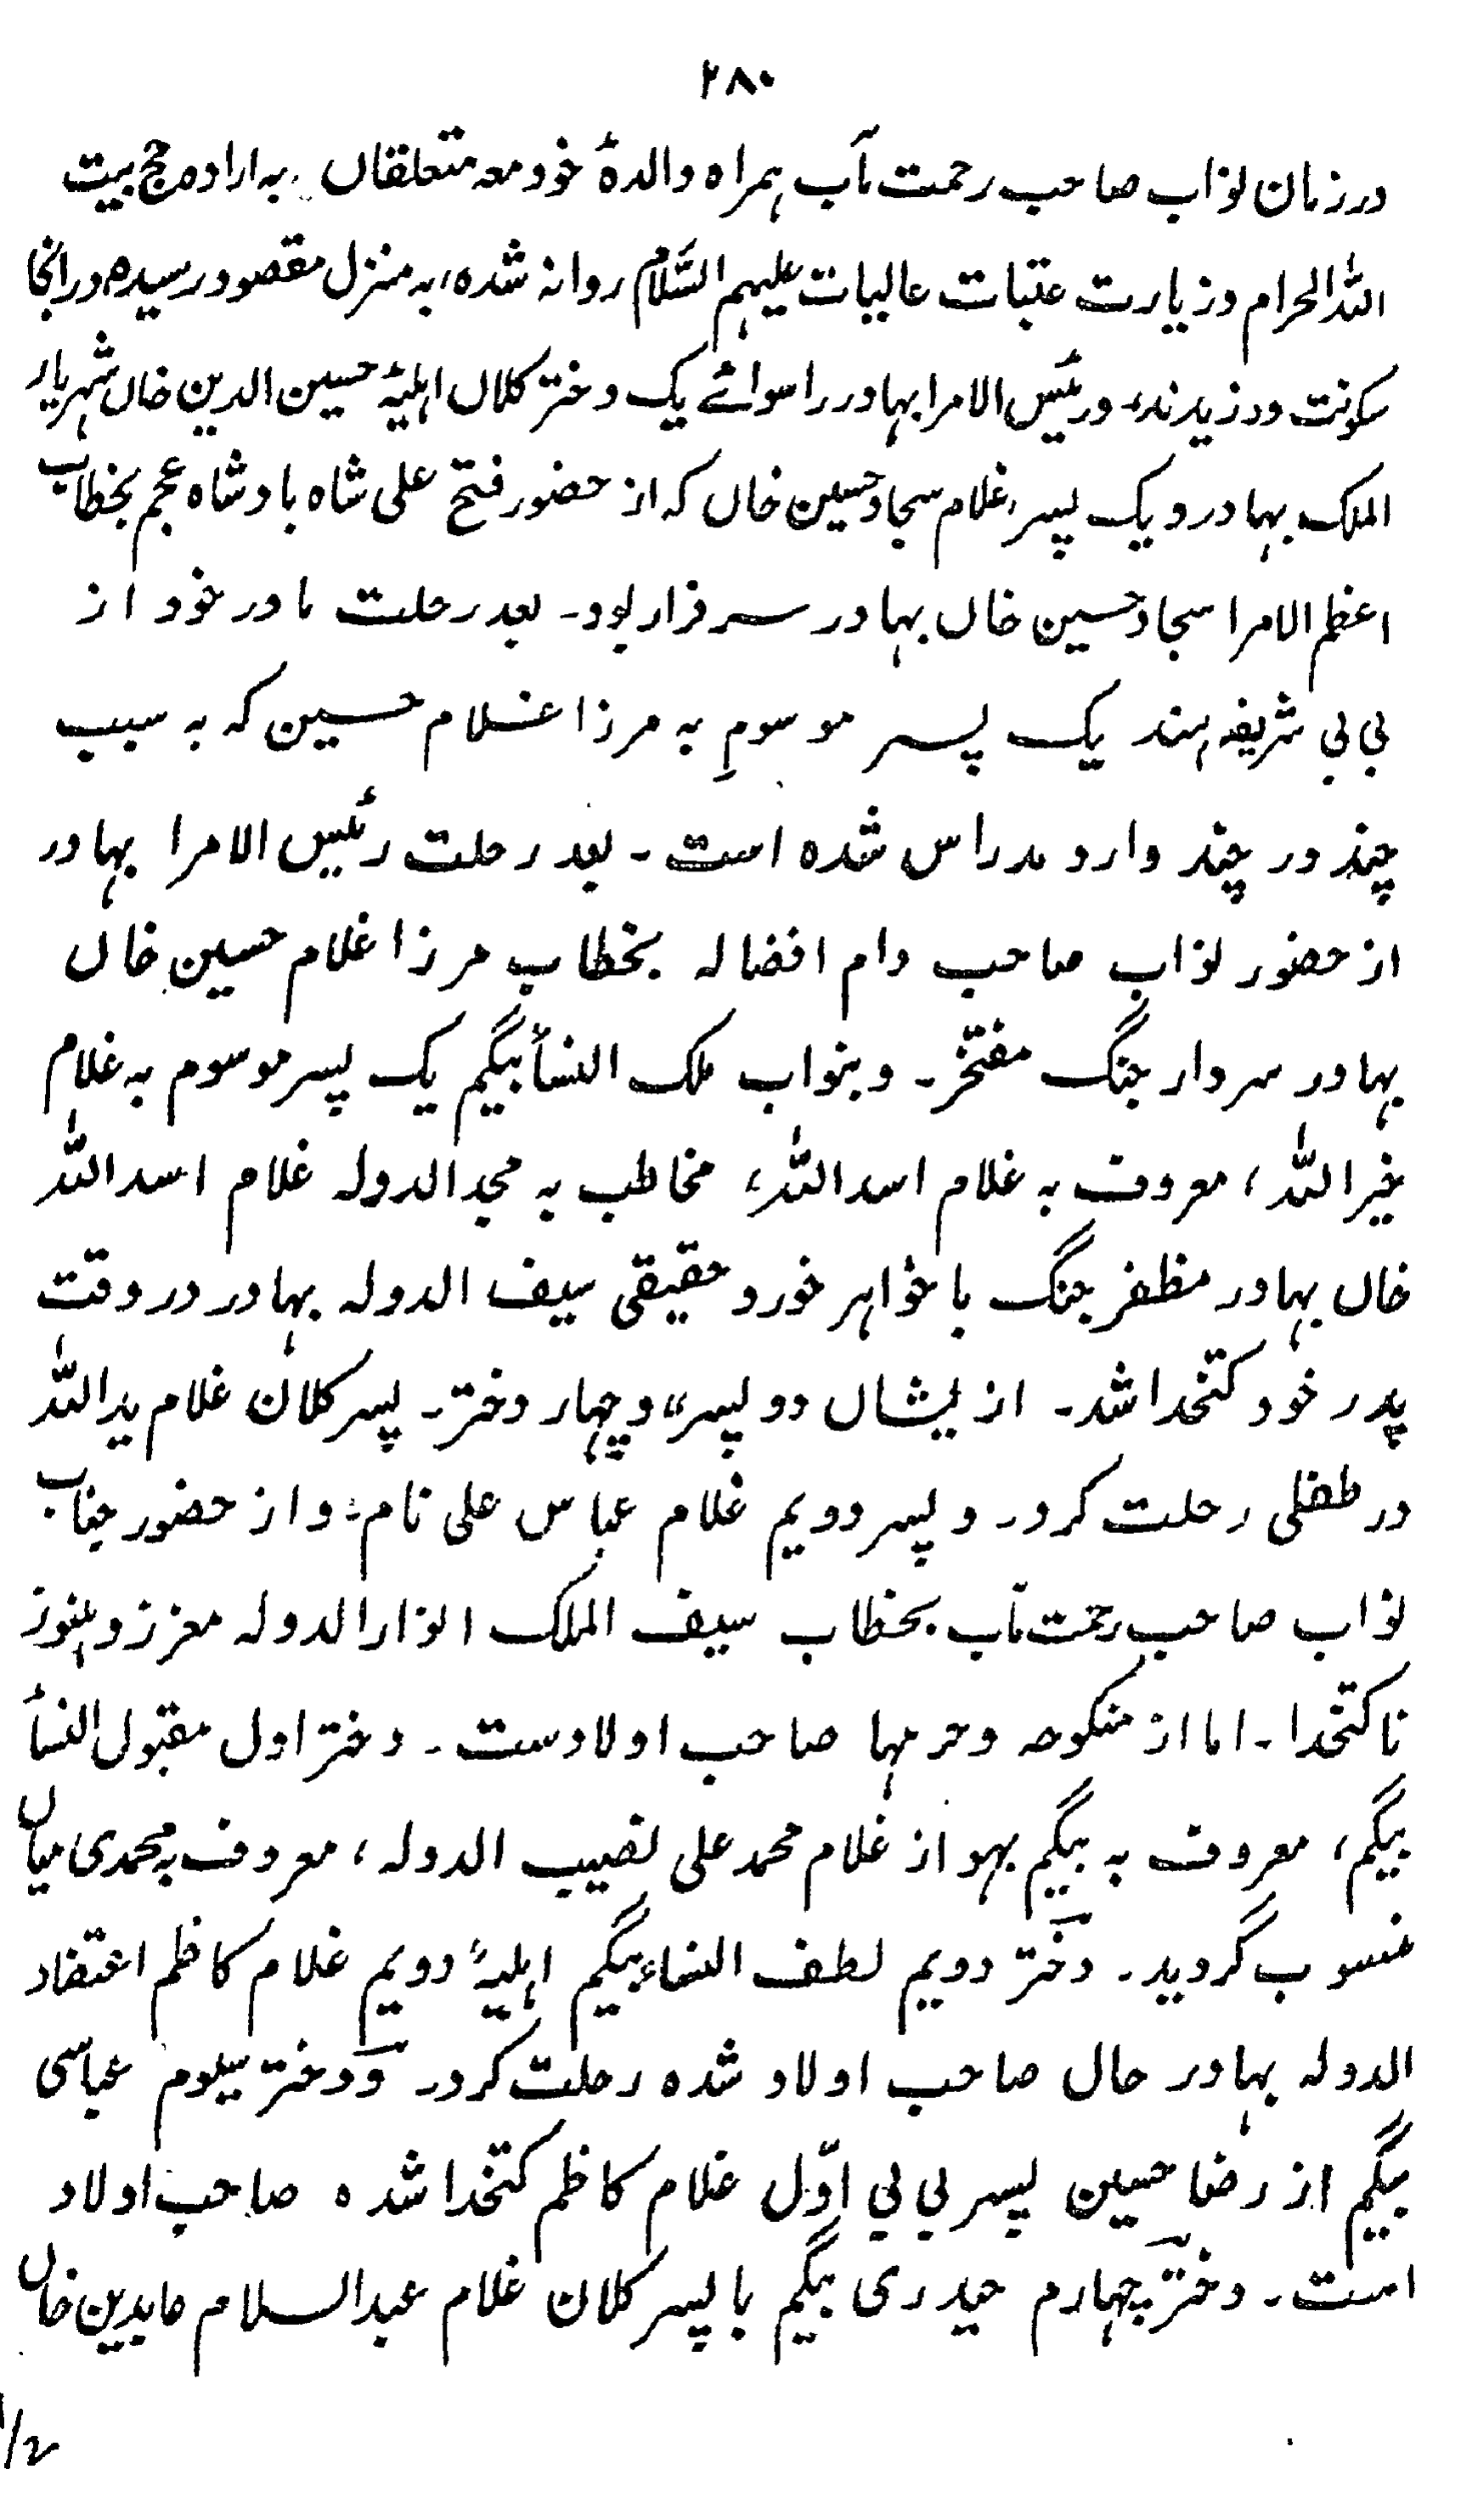 ۲۸۰
در زمان نواب صاحب رحمت مآب ہمراہ والدۂ خود معہ متعلقاں، بہ ارادہ حج بیت
اللہ الحرام و زیارت عتبات عالیات علیہم السّلام روانہ شدہ، بہ منزل مقصود رسیدہ در انجا
سکونت ورزیدند، و رئیس الامرا بہادر را سوائے یک دختر کلاں اہلیۂ حسین الدین خاں شہریار
الملک بہادر و یک پسر، غلام سجاد حسین خاں کہ از حضور فتح علی شاہ بادشاہ عجم بخطاب
اعظم الامرا سجاد حسین خاں بہادر سرفراز بود۔ بعد رحلت مادر خود از
بی بی شریفہ ہند یک پسر موسومِ بہ مرزا غلام حسین کہ بہ سبب
چند در چند وارد مدراس شدہ است۔ بعد رحلت رئیس الامرا بہادر
از حضور نواب صاحب دام افضالہ بخطاب مرزا غلام حسین خاں
بہادر سردار جنگ مفتخر۔ و بنواب ملک النسأ بیگم یک پسر موسوم بہ غلام
خیر اللہ، معروف بہ غلام اسد اللہ، مخاطب بہ مجد الدولہ غلام اسد اللہ
خاں بہادر مظفر جنگ با خواہر خورد حقیقی سیف الدولہ بہادر در وقت
پدر خود کتخدا شد۔ از یشاں دو پسر، و چہار دختر۔ پسر کلان غلام ید اللہ
در طفلی رحلت کرد۔ و پسر دویم غلام عباس علی نام، و از حضور جناب
نواب صاحب رحمت مآب بخطاب سیف الملک انوار الدولہ معزز و ہنوز
نا کتخدا۔ اما از منکوحہ و حرمہا صاحب اولادست۔ دختر اول مقبول النسأ
بیگم، معروف بہ بیگم بہو از غلام محمد علی نصیب الدولہ، معروف بہ محمدی میاں
منسوب گردید۔ دختر دویم لطف النساء بیگم اہلیۂ دویم غلام کاظم اعتقاد
الدولہ بہادر حال صاحب اولاد شدہ رحلت کرد۔ و دختر سیوم عباسی
بیگم از رضا حسین پسر بی بی اوّل غلام کاظم کتخدا شدہ صاحب اولاد
است۔ دختر چہارم حیدری بیگم با پسر کلان غلام عبد السلام عابدین خاں